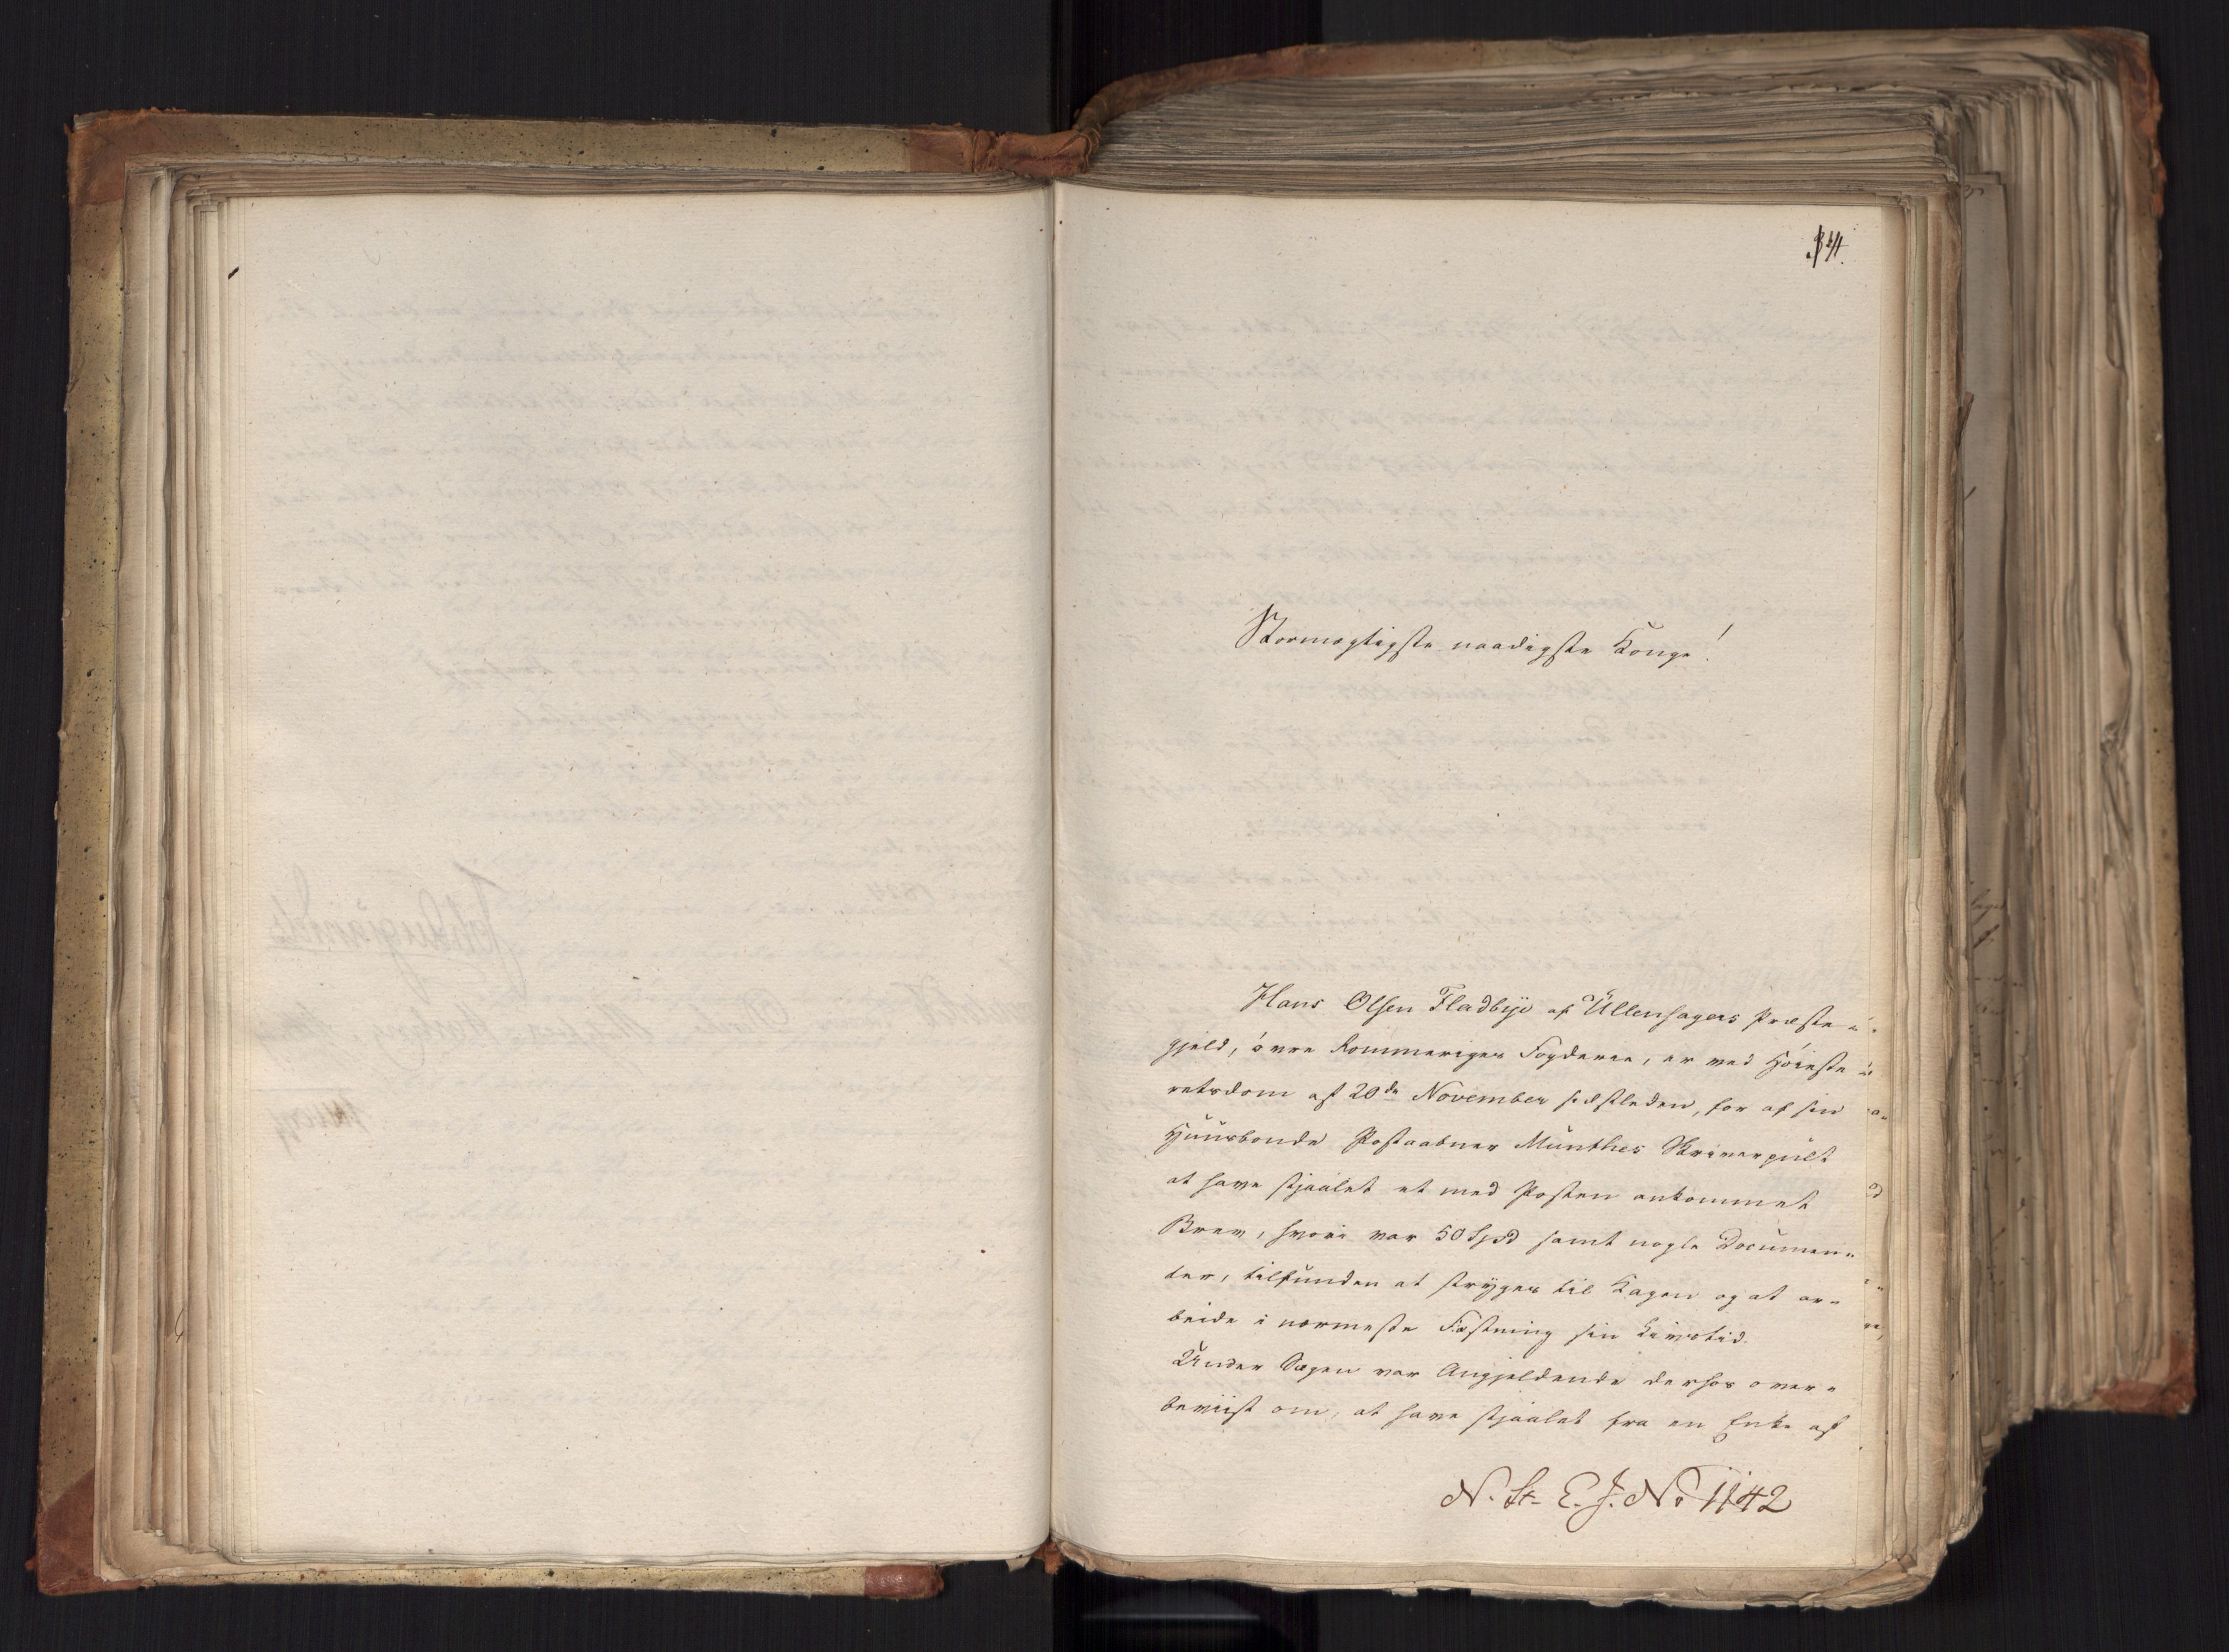 Stormægtigste naadigste Konge!
Hans Olsen Fladbye af Ullensagers Præste-
gjeld, övre Rommeriges Fogderie, er ved Höieste-
retsdom af 20de November sidstleden, for af sin
Huusbonde Postaabner Münthes Skriverpult
at have stjaalet et med Posten ankommet
Brev, hvori var 50 Spd samt nogle Documen-
ter, tilfunden at stryges til Kagen og at ar-
beide i nærmeste Fæstning sin Livstid.
Under Sagen var Angjeldende derhos over-
beviist om, at have stjaalet fra en Enke af
N. St. E. J. No 1142